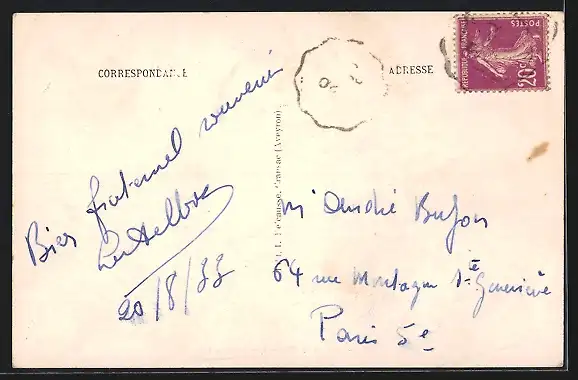 CORRESPONDANCE
ADRESSE
POSTES
REPUBLIQUE FRANÇAISE
20c
Bien fraternel souvenir
20/8/33
Cransac (Aveyron)
M André Bufon
64 rue Montagne Ste Geneviève
Paris 5e